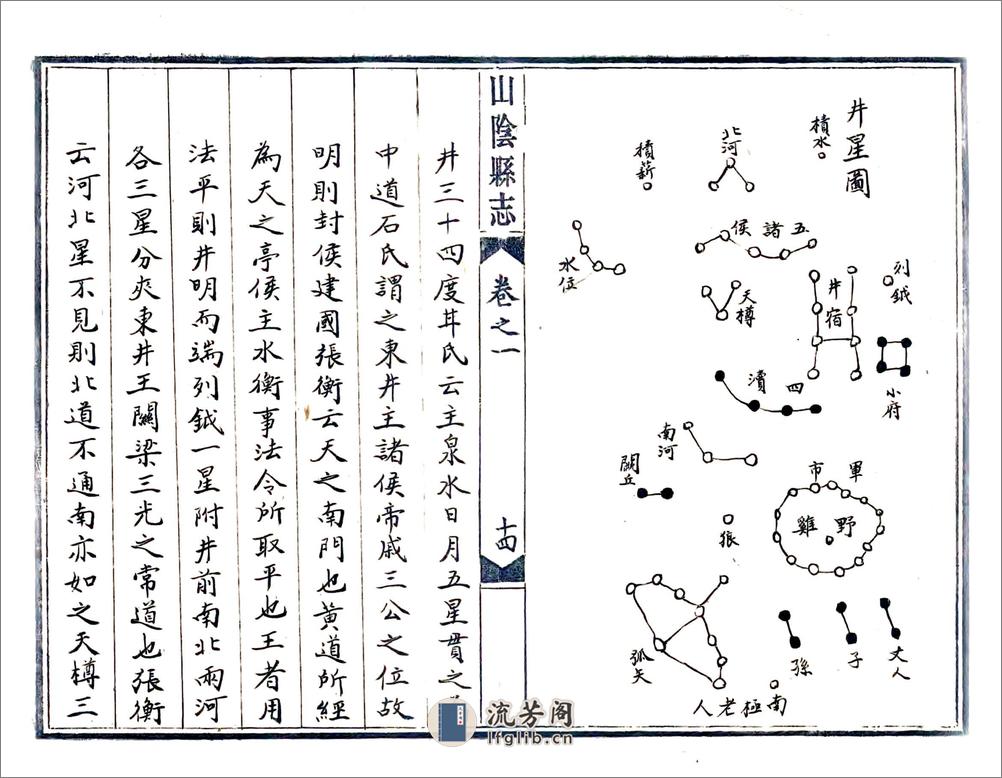 井星圖
積水
北河
積薪
五諸侯
列鉞
井宿
天樽
水位
小府
四瀆
南河
闕丘
軍市
野雞
狼
丈人
子
孫
弧矢
南極老人
山陰縣志
卷之一
十四
井三十四度甘氏云主泉水日月五星貫之
中道石氏謂之東井主諸侯帝戚三公之位故
明則封侯建國張衡云天之南門也黃道所經
為天之亭侯主水衡事法令所取平也王者用
法平則井明而端列鉞一星附井前南北兩河
各三星分夾東井王關梁三光之常道也張衡
云河北星不見則北道不通南亦如之天樽三
流芳阁
lfglib.cn